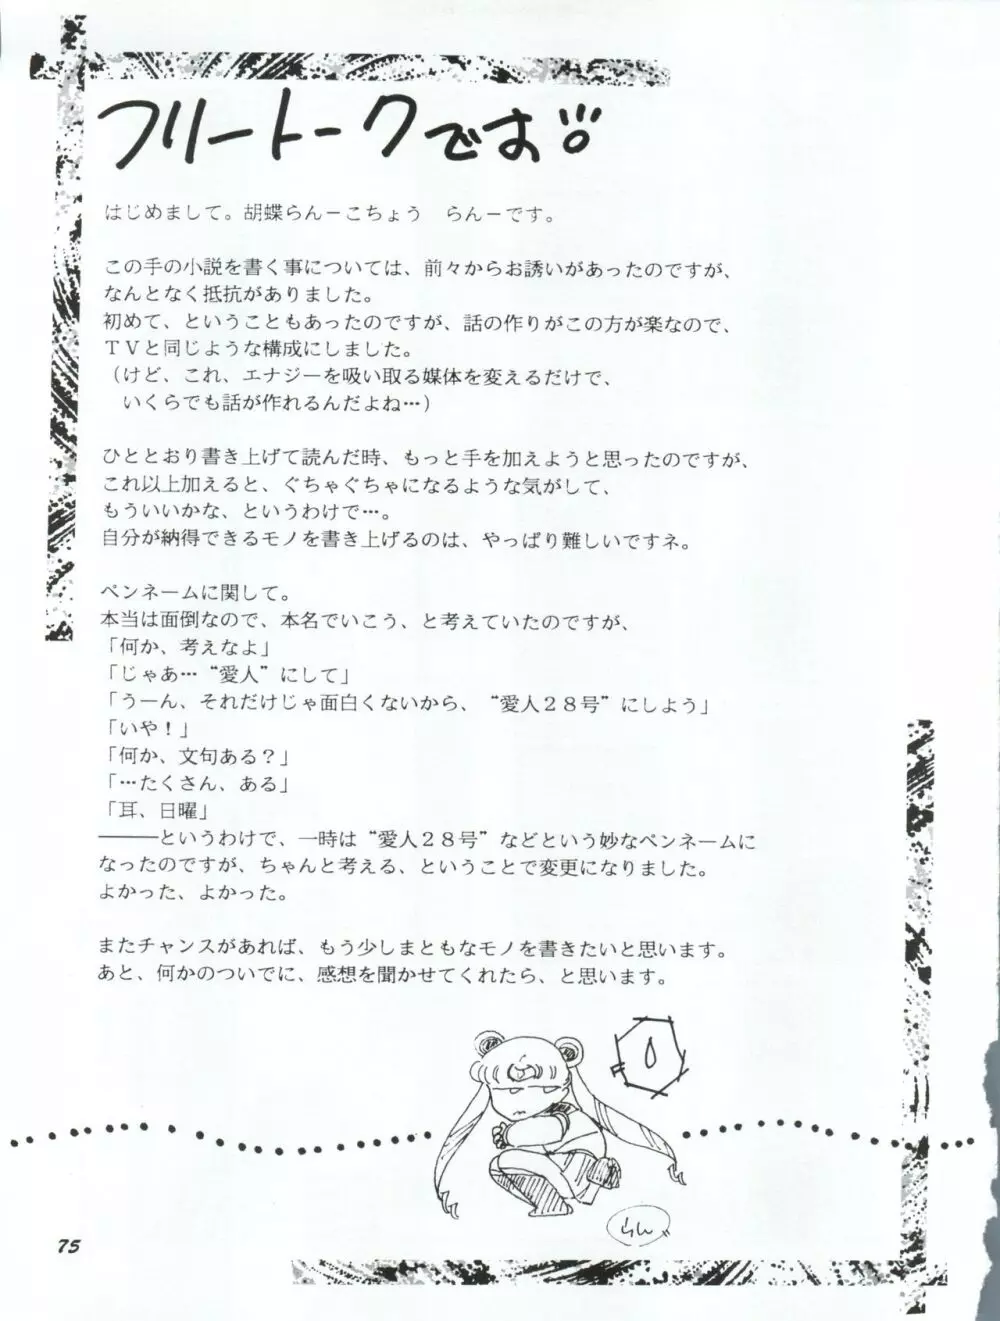 フリートークです。
はじめまして。胡蝶らん－こちょう　らん－です。
この手の小説を書く事については、前々からお誘いがあったのですが、
なんとなく抵抗がありました。
初めて、ということもあったのですが、話の作りがこの方が楽なので、
ＴＶと同じような構成にしました。
（けど、これ、エナジーを吸い取る媒体を変えるだけで、
いくらでも話が作れるんだよね…）
ひととおり書き上げて読んだ時、もっと手を加えようと思ったのですが、
これ以上加えると、ぐちゃぐちゃになるような気がして、
もういいかな、というわけで…。
自分が納得できるモノを書き上げるのは、やっぱり難しいですネ。
ペンネームに関して。
本当は面倒なので、本名でいこう、と考えていたのですが、
「何か、考えなよ」
「じゃあ…“愛人”にして」
「うーん、それだけじゃ面白くないから、“愛人２８号”にしよう」
「いや！」
「何か、文句ある？」
「…たくさん、ある」
「耳、日曜」
―――というわけで、一時は“愛人２８号”などという妙なペンネームに
なったのですが、ちゃんと考える、ということで変更になりました。
よかった、よかった。
またチャンスがあれば、もう少しまともなモノを書きたいと思います。
あと、何かのついでに、感想を聞かせてくれたら、と思います。
らん
75